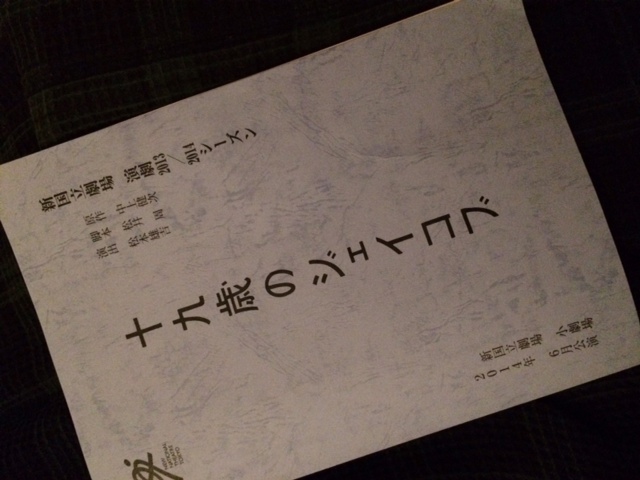 新国立劇場 演劇 2013/2014 シーズン
原作 中上健次
脚本 松井 周
演出 松本雄吉
十九歳のジェイコブ
新国立劇場 小劇場
2014年 6月公演
NEW
NATIONAL
THEATRE
TOKYO